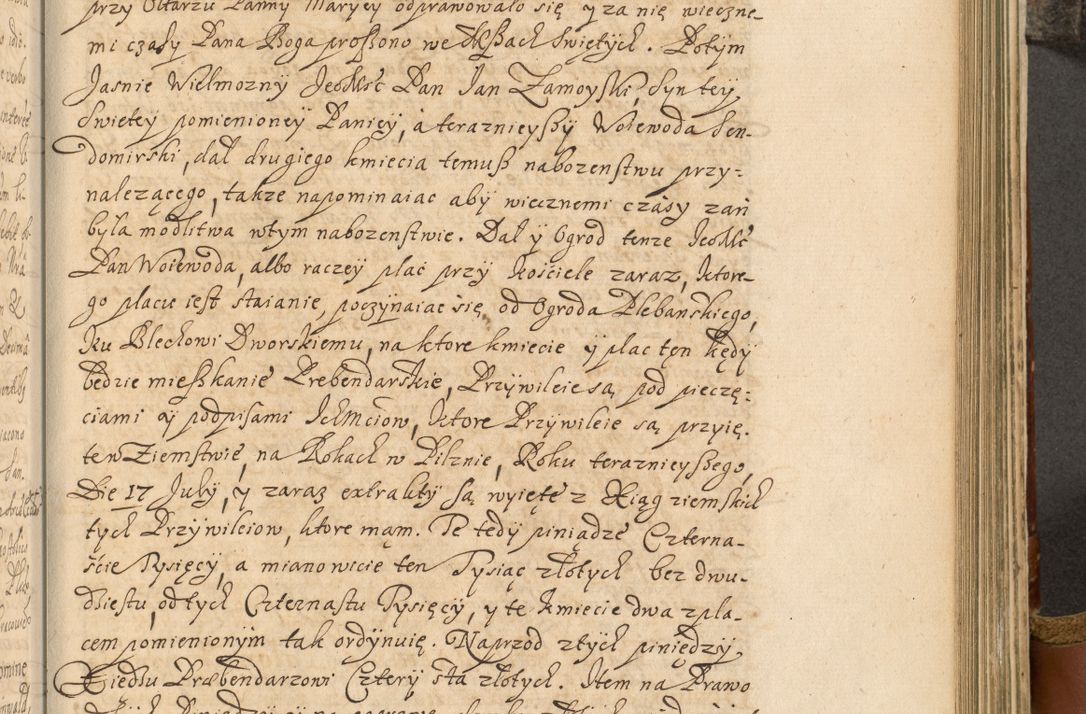 przy Ołtarzu Panny Maryey odprawowało się, y za nię wieczne-
mi czasy Pana Boga proszono we Mszach Swiętych. Potym
Jasnie Wielmozny JeoMsć Pan Jan Zamoyski, Syn tey
Swietey pomienioney Paniey, á teraznieyszy Woiewoda Sen-
domirski, dał drugiego kmiecia temusz nabozenstwu przy=
nalezącego, takze napominaiac aby wiecznemi czásy zań
była modlitwa wtym nabozenstwie. Dał ÿ Ogrod tenze JeoMsć
Pan Woiewoda, albo raczey plac przy Kościele zaraz, Ktore-
go placu iest staianie, poczÿnaiac się, od Ogroda Plebanskiego,
Ku Blechowi Dworskiemu, na ktore kmiecie y plac ten kędy
będzie mieszkanie Prebendarskie, Przÿwileie są, pod pieczę=
ciami y podpisami Ichmciow, Ktore Przÿwileie są przyię.
te w Ziemstwie, na Rokach w Pilznie, Roku teraznieyszego,
Die 17 July, y zaraz extrakty są wyięte z Xiąg ziemskich
tych Przÿwileiow, ktore mąm. Te tedy piniądze Czterna-
ście Tysięcÿ, a mianowicie ten Tysiąc złotych bez dwu-
dziestu, od tych Czternastu Tysięcÿ, y te Kmiecie dwa z pla-
cem pomienionÿm tak ordÿnuię. Naprzod z tÿch piniędzy,
Xiędzu Præbendarzowi Cztery sta złotych. Item na Prawo